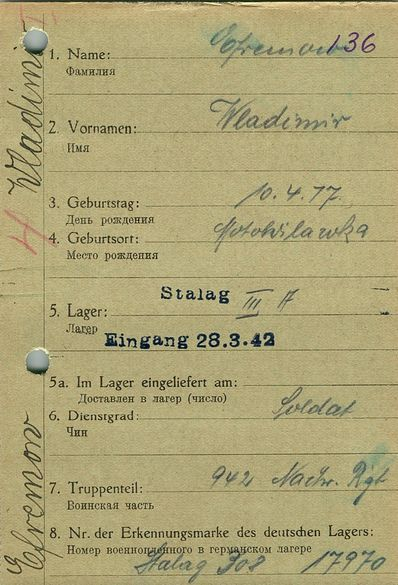 Efremow Wladimir
1. Name: Efremow 136
Фамилия
2. Vornamen: Wladimir
Имя
3. Geburtstag: 10.4.17.
День рождения
4. Geburtsort: Motowilawka
Место рождения
Stalag III A
5. Lager:
Лагер
Eingang 28.3.42
5a. Im Lager eingeliefert am:
Доставлен в лагер (число)
6. Dienstgrad: Soldat
Чин
7. Truppenteil: 942 Nachr. Rgt
Воинская часть
8. Nr. der Erkennungsmarke des deutschen Lagers:
Номер военнопленного в германском лагере
Stalag 308 17970